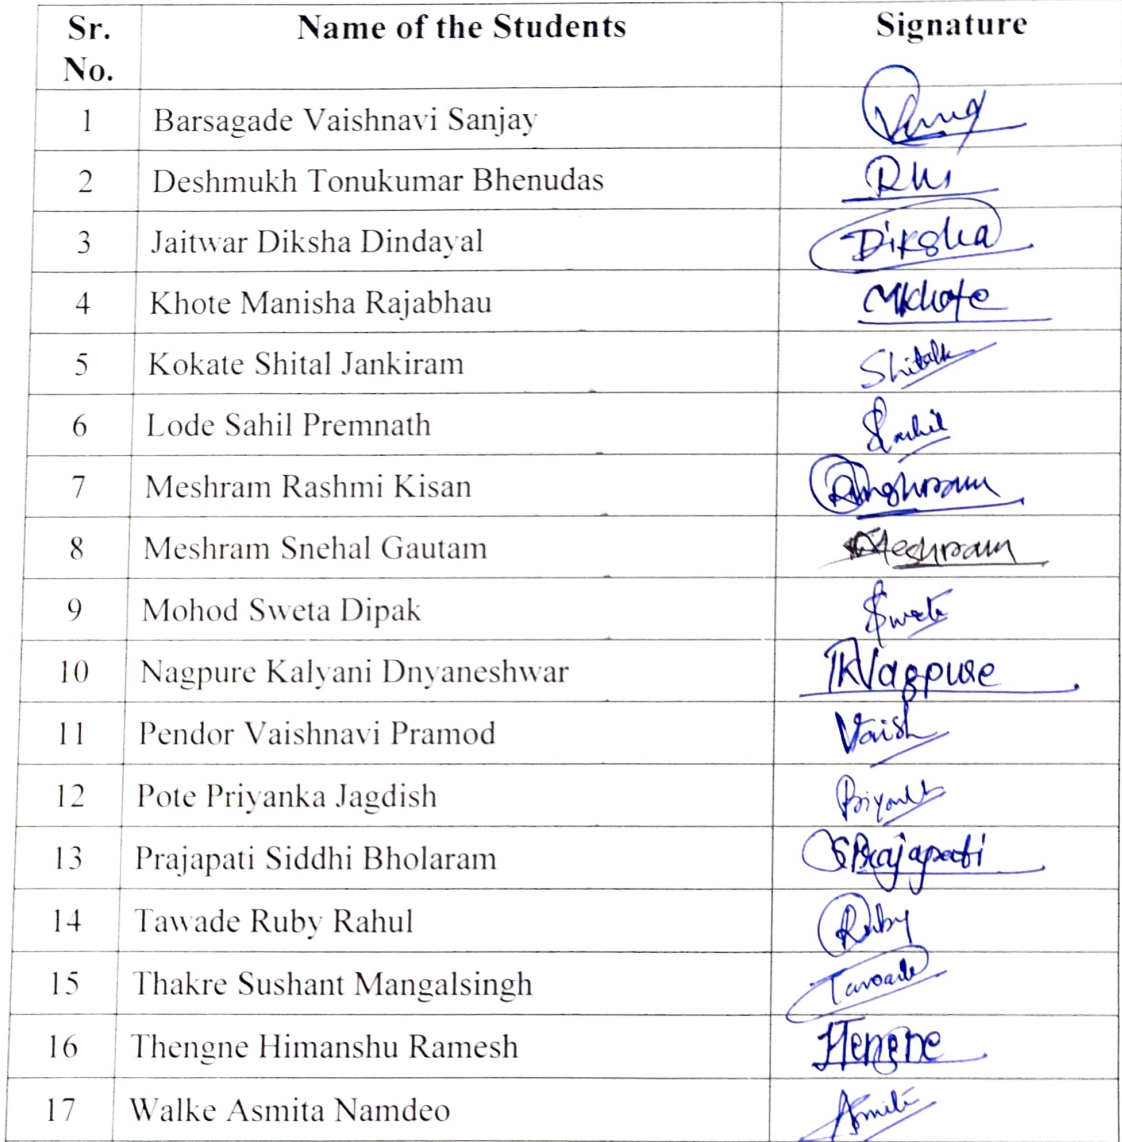 Sr. No. Name of the Students Signature
1 Barsagade Vaishnavi Sanjay
2 Deshmukh Tonukumar Bhenudas
3 Jaitwar Diksha Dindayal Diksha
4 Khote Manisha Rajabhau MKhote
5 Kokate Shital Jankiram
6 Lode Sahil Premnath Sahil
7 Meshram Rashmi Kisan
8 Meshram Snehal Gautam Meshram
9 Mohod Sweta Dipak Sweta
10 Nagpure Kalyani Dnyaneshwar
11 Pendor Vaishnavi Pramod Vaish
12 Pote Priyanka Jagdish
13 Prajapati Siddhi Bholaram SPrajapati
14 Tawade Ruby Rahul Ruby
15 Thakre Sushant Mangalsingh
16 Thengne Himanshu Ramesh
17 Walke Asmita Namdeo